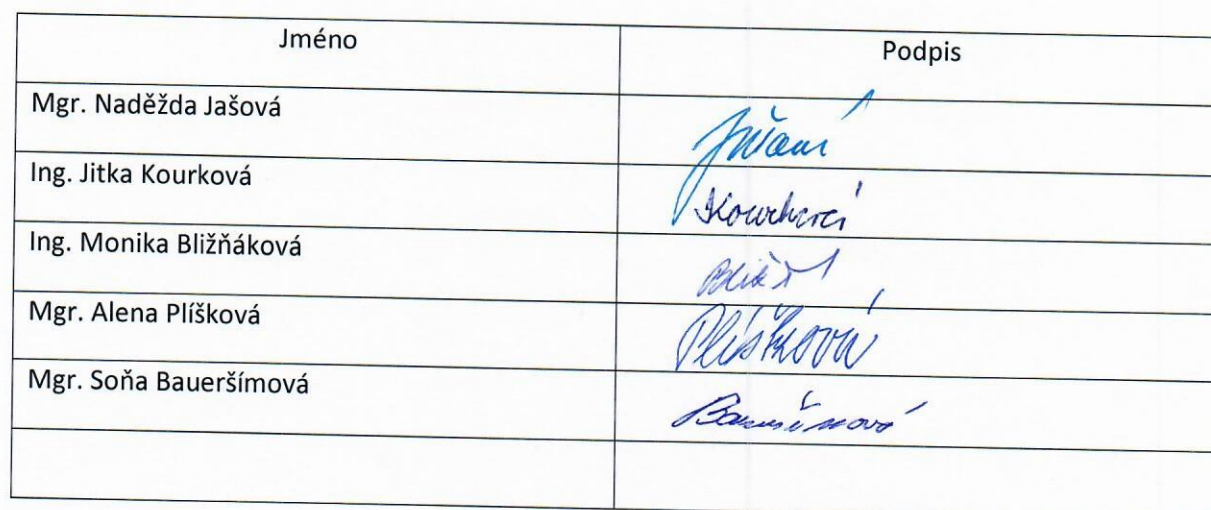 Jméno Podpis
Mgr. Naděžda Jašová
Ing. Jitka Kourková Kourková
Ing. Monika Bližňáková
Mgr. Alena Plíšková Plíšková
Mgr. Soňa Baueršímová